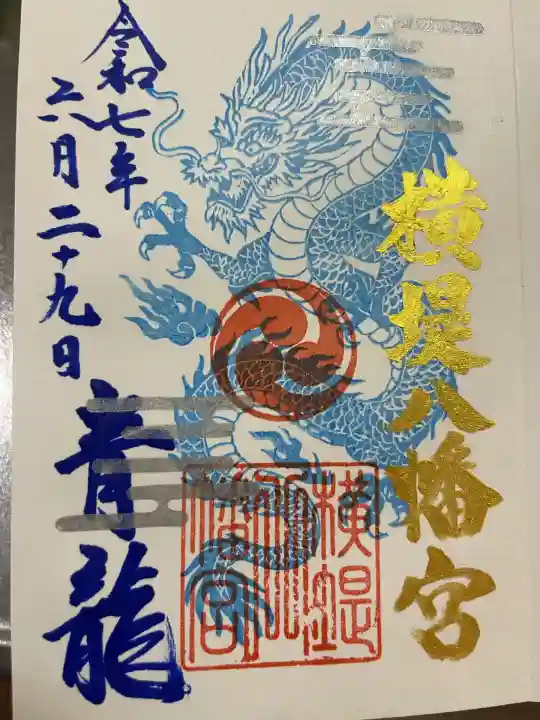 横堤八幡宮
横堤八幡宮
青龍
令和七年
六月二十九日